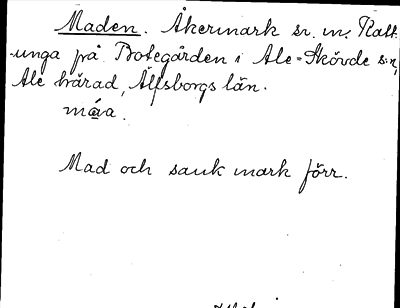 Maden. Åkermark sr. m. Ratt-
unga på Botegården i Ale-Skövde s:n,
Ale härad, Älfsborgs län.
måva.
Mad och sank mark förr.